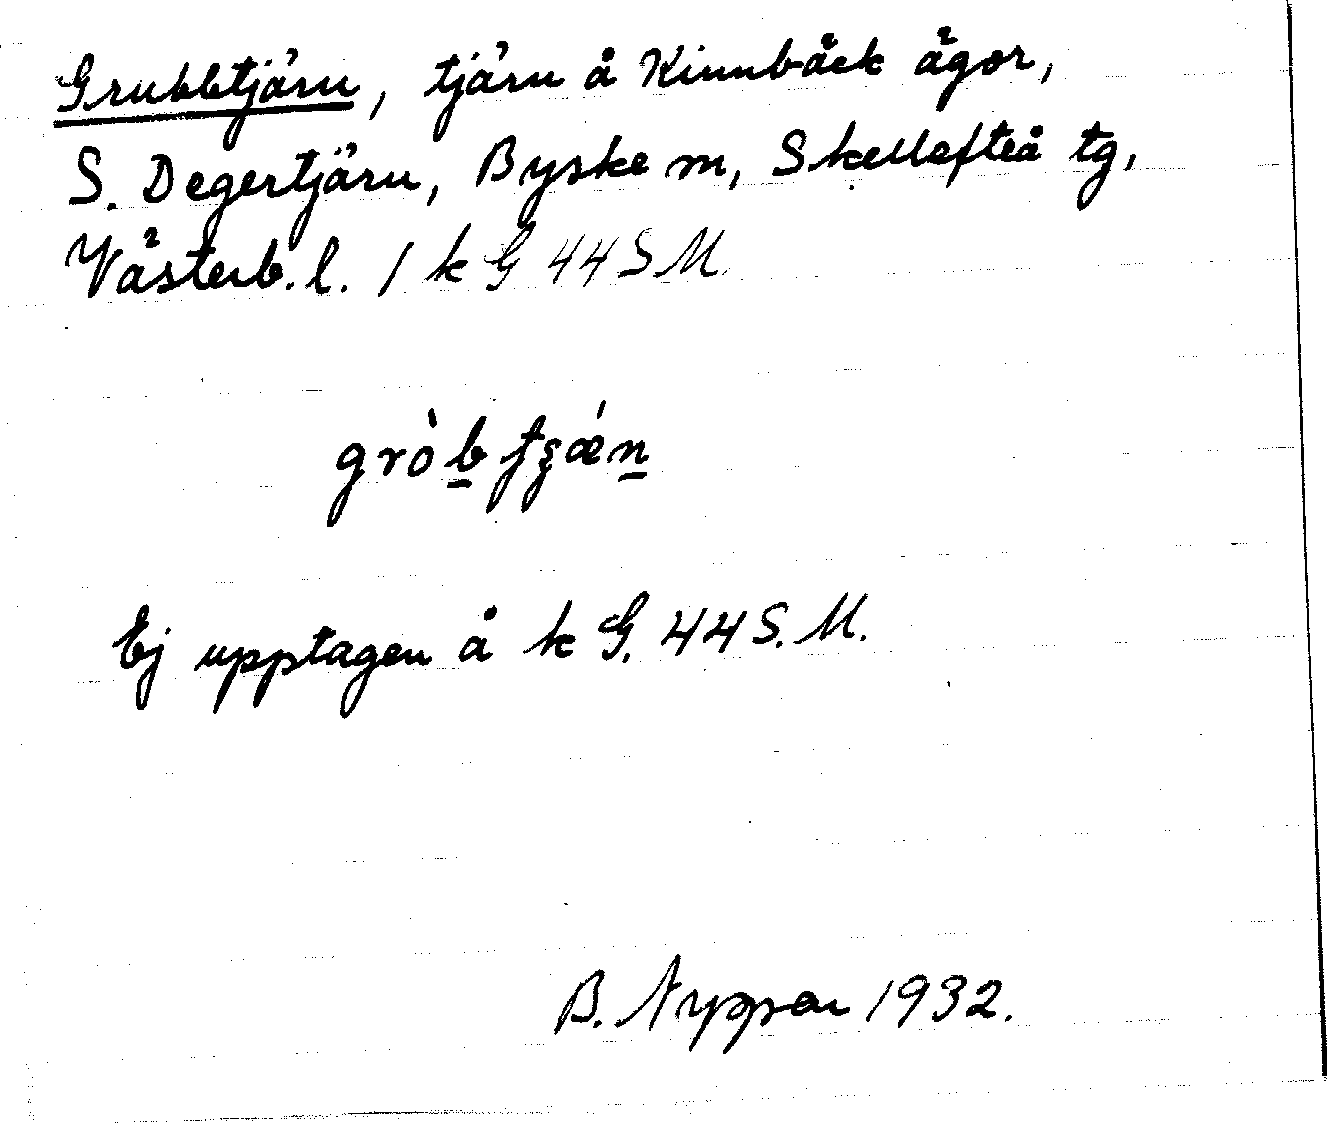 Grubbtjärn, tjärn å Kinnbäck ägor,
S. Degertjärn, Byske sn, Skellefteå tg,
Västerb. l. / k G 44 S M
gròb̲tʒǽn̲
Ej upptagen å k G. 44 S. M.
B. 1932.